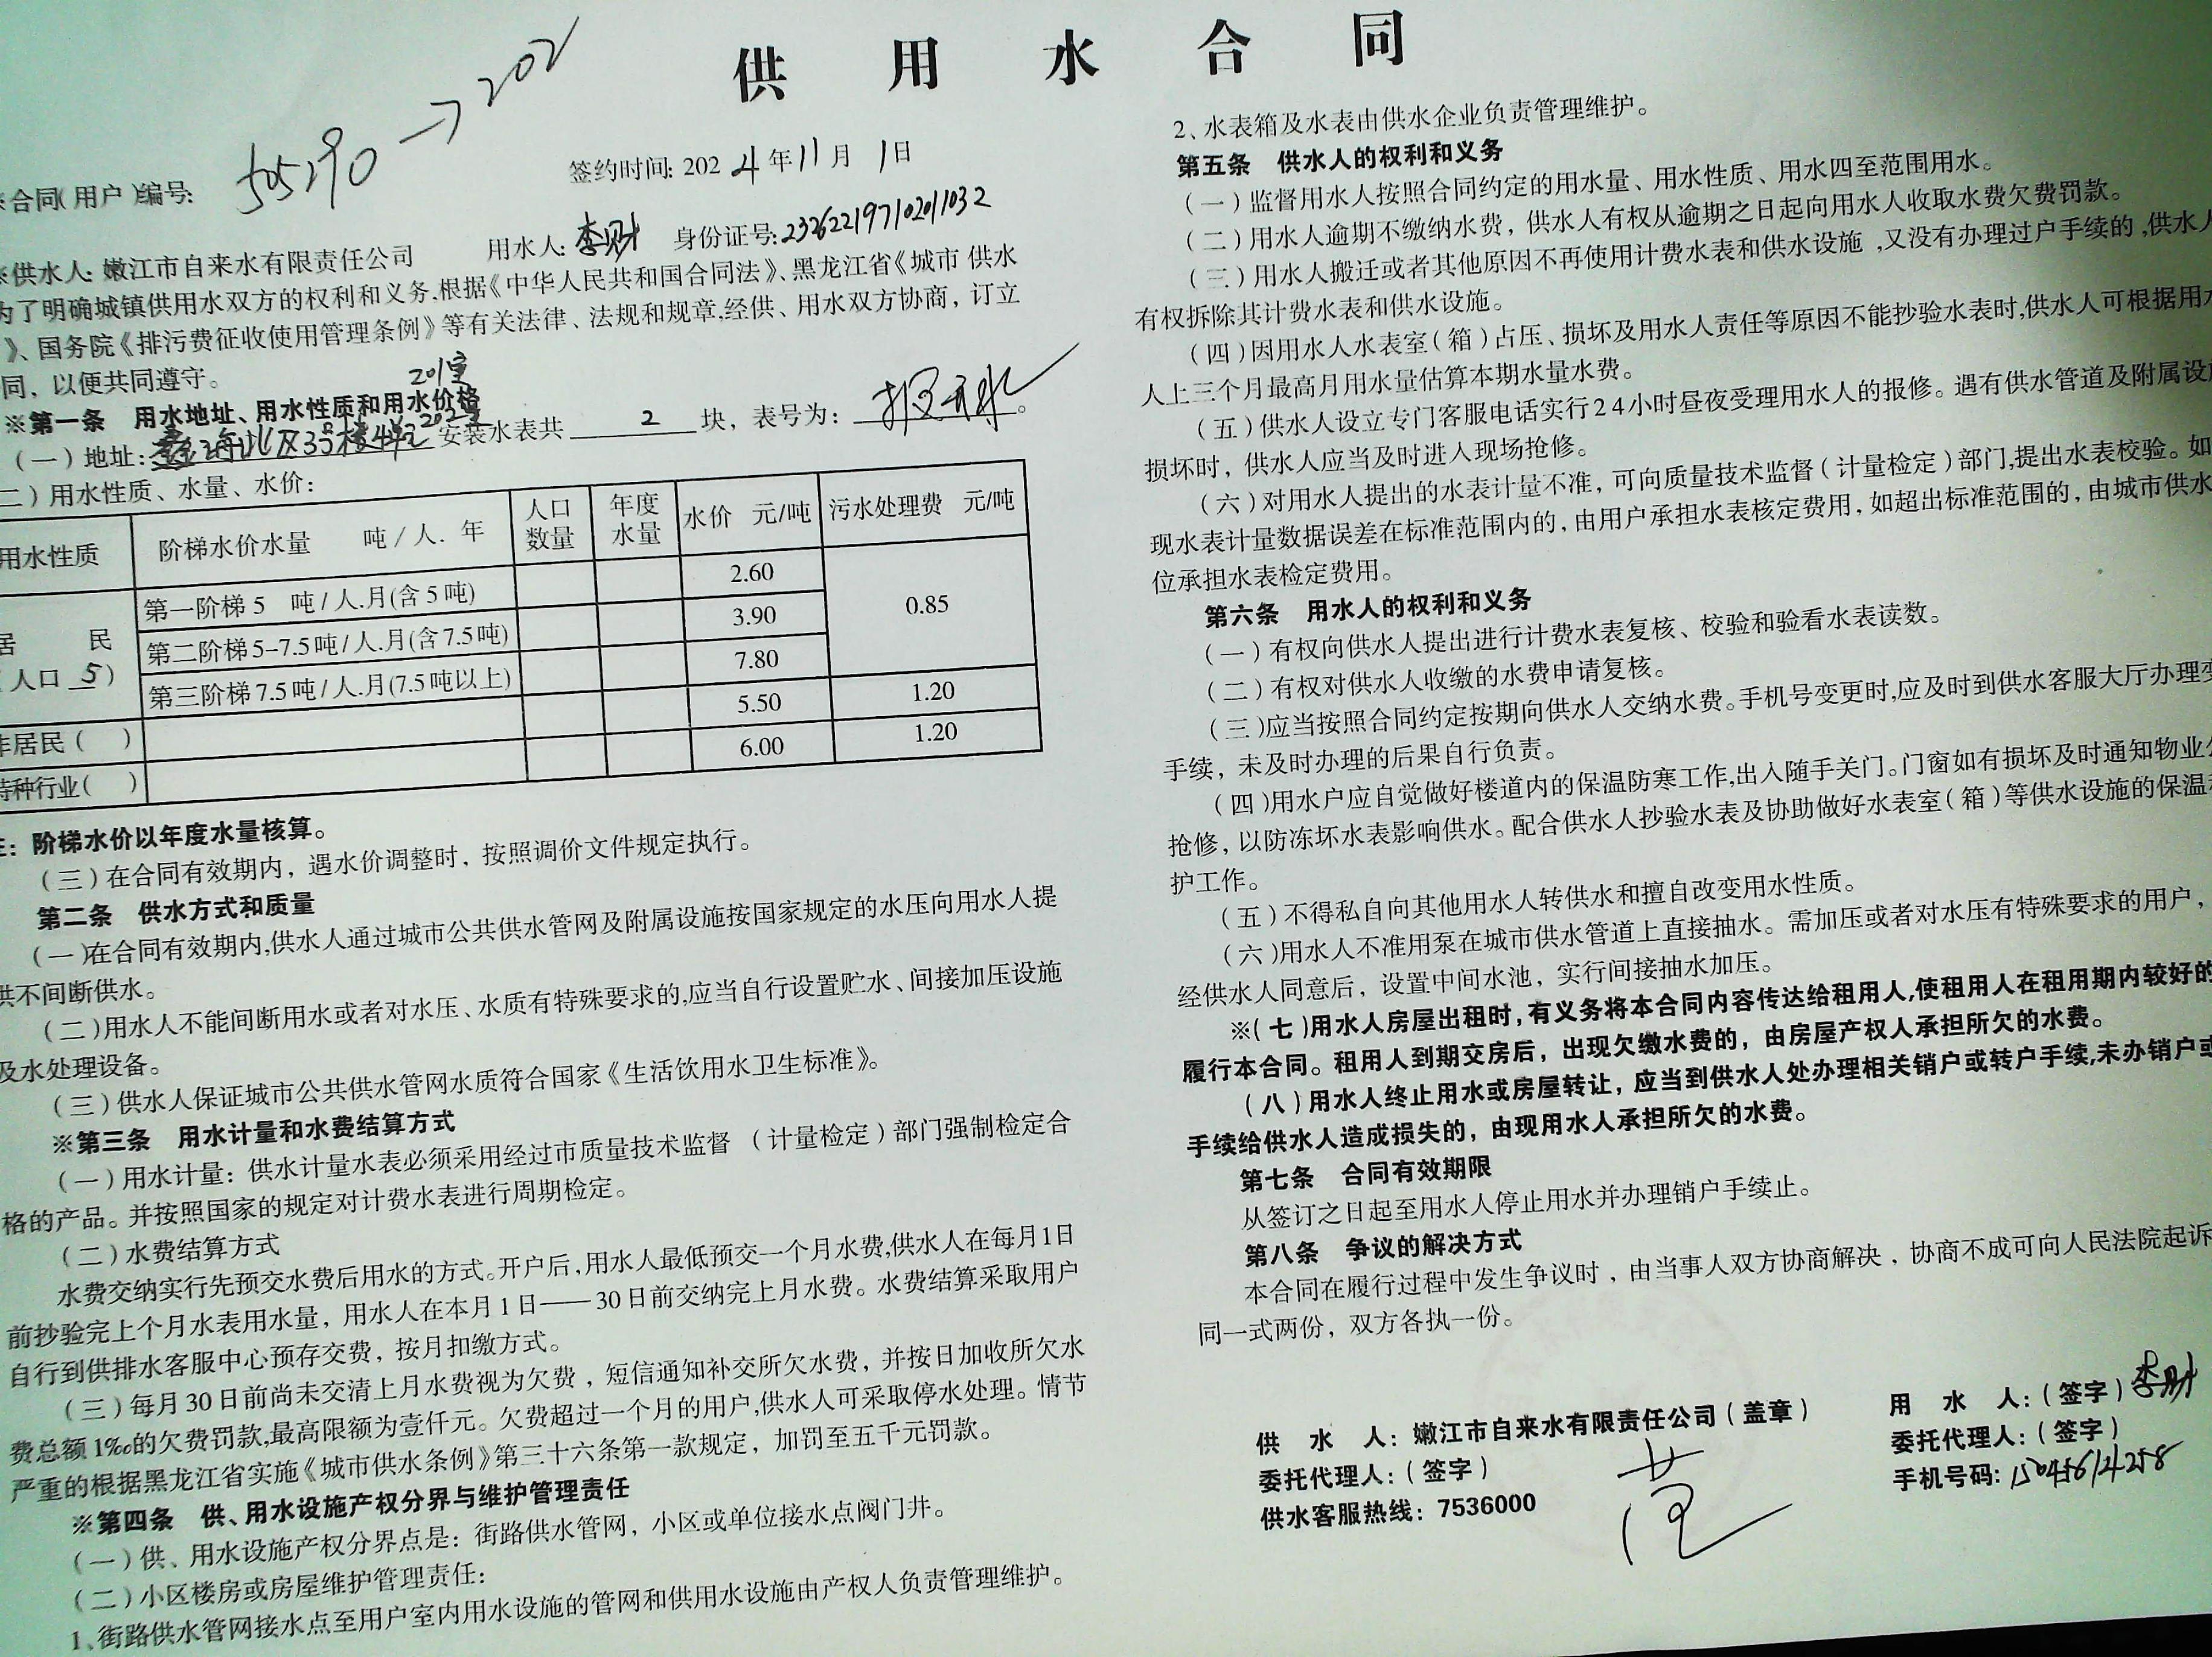 供用水合同
505290→202
合同(用户)编号:
签约时间: 2024年11月1日
供水人: 嫩江市自来水有限责任公司 用水人: 李财 身份证号: 232622197102011032
为了明确城镇供用水双方的权利和义务,根据《中华人民共和国合同法》、黑龙江省《城市 供水
》、国务院《排污费征收使用管理条例》等有关法律、法规和规章,经供、用水双方协商，订立
同，以便共同遵守。
※第一条 用水地址、用水性质和用水价格
201室
202室
(一)地址: 北区3号楼4单元 安装水表共 2 块，表号为:
二)用水性质、水量、水价:
用水性质 阶梯水价水量 吨/人. 年 人口数量 年度水量 水价 元/吨 污水处理费 元/吨
居 民
人口 5)
第一阶梯 5 吨/人.月(含 5 吨) 2.60 0.85
第二阶梯 5–7.5吨/人.月(含 7.5吨) 3.90
第三阶梯 7.5吨/人.月(7.5吨以上) 7.80
非居民( ) 5.50 1.20
特种行业( ) 6.00 1.20
: 阶梯水价以年度水量核算。
(三)在合同有效期内，遇水价调整时，按照调价文件规定执行。
第二条 供水方式和质量
(一)在合同有效期内,供水人通过城市公共供水管网及附属设施按国家规定的水压向用水人提
供不间断供水。
(二)用水人不能间断用水或者对水压、水质有特殊要求的,应当自行设置贮水、间接加压设施
及水处理设备。
(三)供水人保证城市公共供水管网水质符合国家《生活饮用水卫生标准》。
※第三条 用水计量和水费结算方式
(一)用水计量: 供水计量水表必须采用经过市质量技术监督 (计量检定)部门强制检定合
格的产品。并按照国家的规定对计费水表进行周期检定。
(二)水费结算方式
水费交纳实行先预交水费后用水的方式。开户后,用水人最低预交一个月水费,供水人在每月1日
前抄验完上个月水表用水量，用水人在本月1日——30日前交纳完上月水费。水费结算采取用户
自行到供排水客服中心预存交费，按月扣缴方式。
(三)每月30日前尚未交清上月水费视为欠费，短信通知补交所欠水费，并按日加收所欠水
费总额1‰的欠费罚款,最高限额为壹仟元。欠费超过一个月的用户,供水人可采取停水处理。情节
严重的根据黑龙江省实施《城市供水条例》第三十六条第一款规定，加罚至五千元罚款。
※第四条 供、用水设施产权分界与维护管理责任
(一)供、用水设施产权分界点是: 街路供水管网，小区或单位接水点阀门井。
(二)小区楼房或房屋维护管理责任:
1、街路供水管网接水点至用户室内用水设施的管网和供用水设施由产权人负责管理维护。
2、水表箱及水表由供水企业负责管理维护。
第五条 供水人的权利和义务
(一)监督用水人按照合同约定的用水量、用水性质、用水四至范围用水。
(二)用水人逾期不缴纳水费，供水人有权从逾期之日起向用水人收取水费欠费罚款。
(三)用水人搬迁或者其他原因不再使用计费水表和供水设施,又没有办理过户手续的,供水人
有权拆除其计费水表和供水设施。
(四)因用水人水表室(箱)占压、损坏及用水人责任等原因不能抄验水表时,供水人可根据用水
人上三个月最高月用水量估算本期水量水费。
(五)供水人设立专门客服电话实行24小时昼夜受理用水人的报修。遇有供水管道及附属设
损坏时，供水人应当及时进入现场抢修。
(六)对用水人提出的水表计量不准，可向质量技术监督(计量检定)部门,提出水表校验。如
现水表计量数据误差在标准范围内的，由用户承担水表核定费用，如超出标准范围的，由城市供水
位承担水表检定费用。
第六条 用水人的权利和义务
(一)有权向供水人提出进行计费水表复核、校验和验看水表读数。
(二)有权对供水人收缴的水费申请复核。
(三)应当按照合同约定按期向供水人交纳水费。手机号变更时,应及时到供水客服大厅办理变
手续，未及时办理的后果自行负责。
(四)用水户应自觉做好楼道内的保温防寒工作,出入随手关门。门窗如有损坏及时通知物业
抢修，以防冻坏水表影响供水。配合供水人抄验水表及协助做好水表室(箱)等供水设施的保温
护工作。
(五)不得私自向其他用水人转供水和擅自改变用水性质。
(六)用水人不准用泵在城市供水管道上直接抽水。需加压或者对水压有特殊要求的用户，
经供水人同意后，设置中间水池，实行间接抽水加压。
※(七)用水人房屋出租时,有义务将本合同内容传达给租用人,使租用人在租用期内较好的
履行本合同。租用人到期交房后，出现欠缴水费的，由房屋产权人承担所欠的水费。
(八)用水人终止用水或房屋转让，应当到供水人处办理相关销户或转户手续,未办销户或
手续给供水人造成损失的，由现用水人承担所欠的水费。
第七条 合同有效期限
从签订之日起至用水人停止用水并办理销户手续止。
第八条 争议的解决方式
本合同在履行过程中发生争议时，由当事人双方协商解决，协商不成可向人民法院起诉
同一式两份，双方各执一份。
供 水 人: 嫩江市自来水有限责任公司(盖章)
委托代理人:(签字)
供水客服热线: 7536000
用 水 人:(签字)李财
委托代理人:(签字)
手机号码: 15045614258